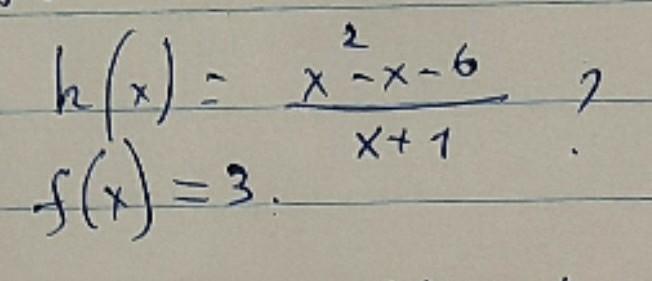 h(x) = x² - x - 6 / x + 1 ?
f(x) = 3.